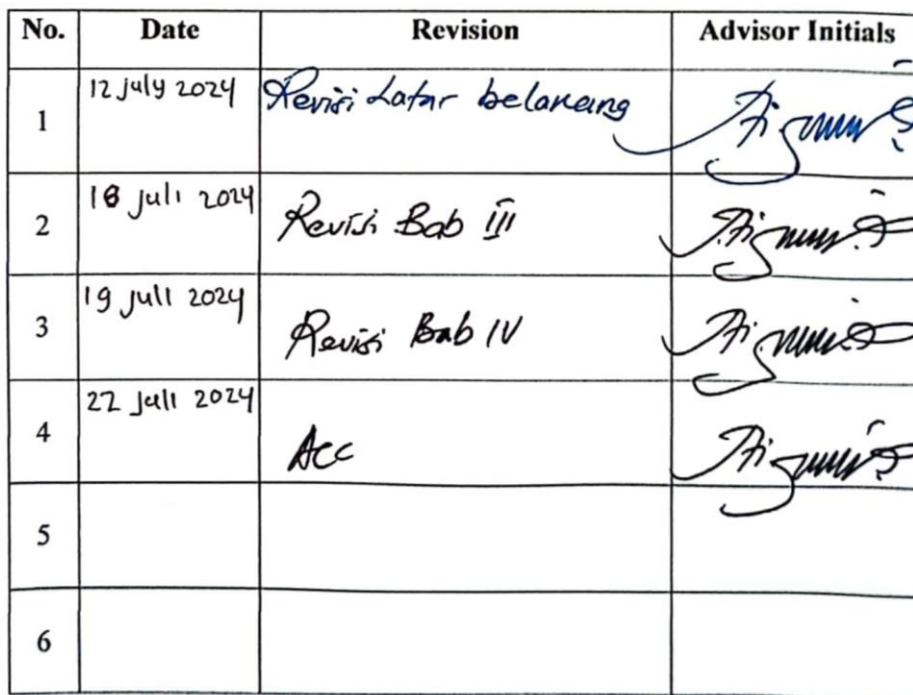 No. Date Revision Advisor Initials
1 12 july 2024 Revisi Latar belakang
2 18 juli 2024 Revisi Bab III
3 19 juli 2024 Revisi Bab IV
4 22 juli 2024 Acc
5
6